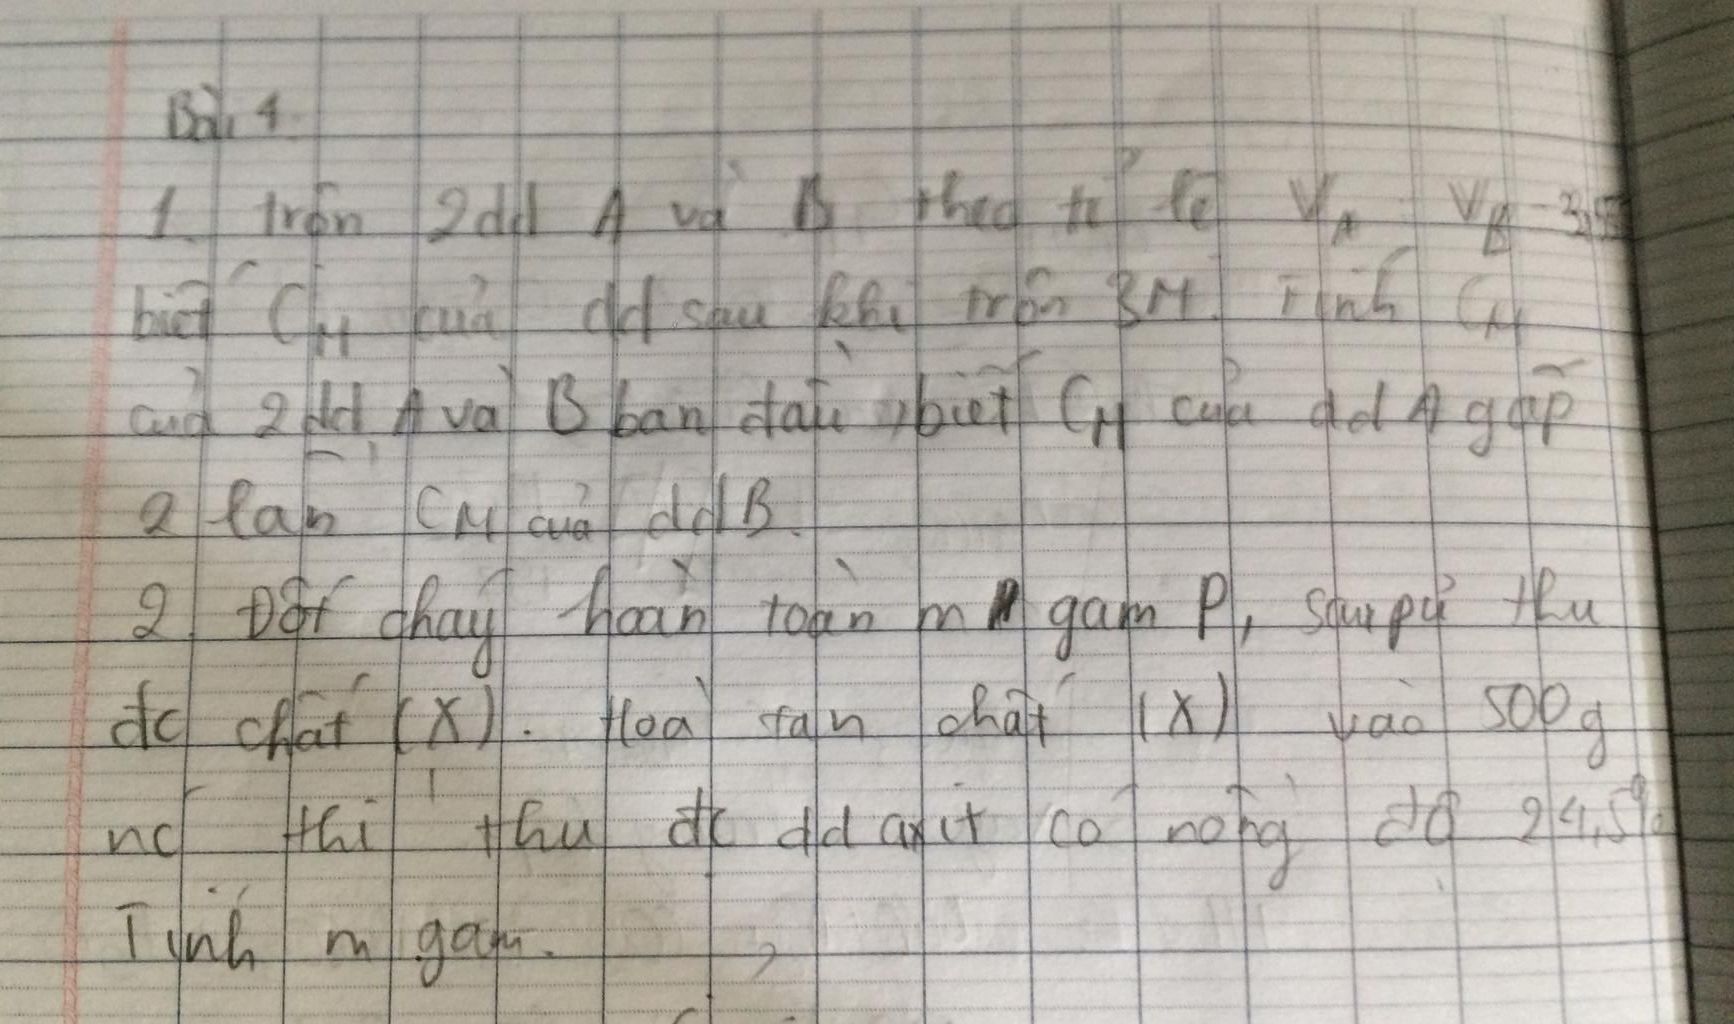 Bài 4.
1. trộn 2dd A và B theo tỉ lệ V_A : V_B =
biết C_M của dd sau khi trộn 3M. Tính C_M
của 2 dd A và B ban đầu, biết C_M của dd A gấp
2 lần C_M của dd B.
2. Đốt cháy hoàn toàn m gam P, sau pứ thu
đc chất (X). Hoà tan chất (X) vào 500g
nc thì thu đc dd axit có nồng độ 24,5%
Tính m gam.